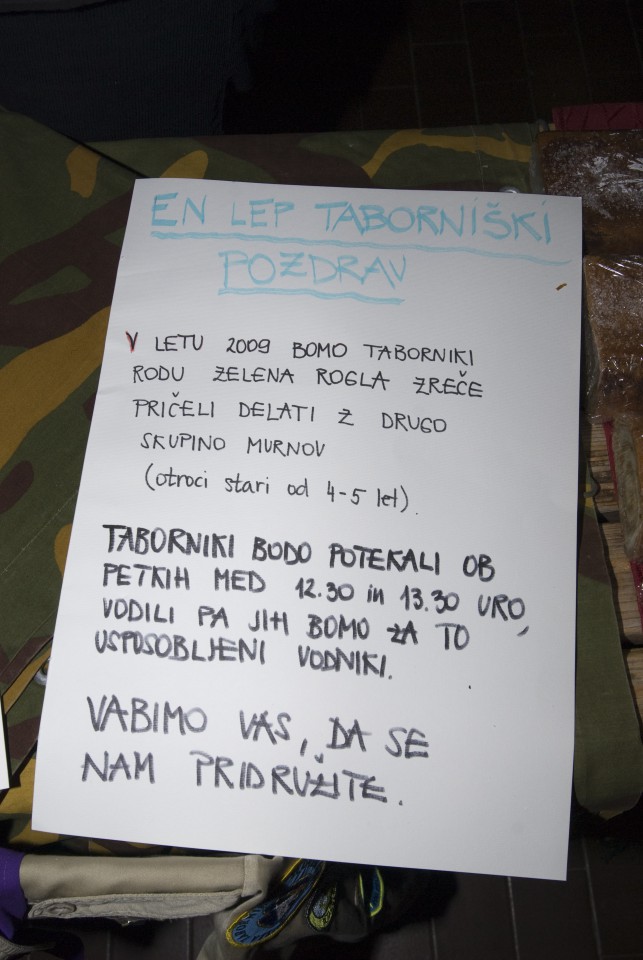 EN LEP TABORNIŠKI
POZDRAV
V LETU 2009 BOMO TABORNIKI
RODU ZELENA ROGLA ZREČE
PRIČELI DELATI Z DRUGO
SKUPINO MURNOV
(otroci stari od 4-5 let).
TABORNIKI BODO POTEKALI OB
PETKIH MED 12.30 in 13.30 URO,
VODILI PA JIH BOMO ZA TO
USPOSOBLJENI VODNIKI.
VABIMO VAS, DA SE
NAM PRIDRUŽITE.